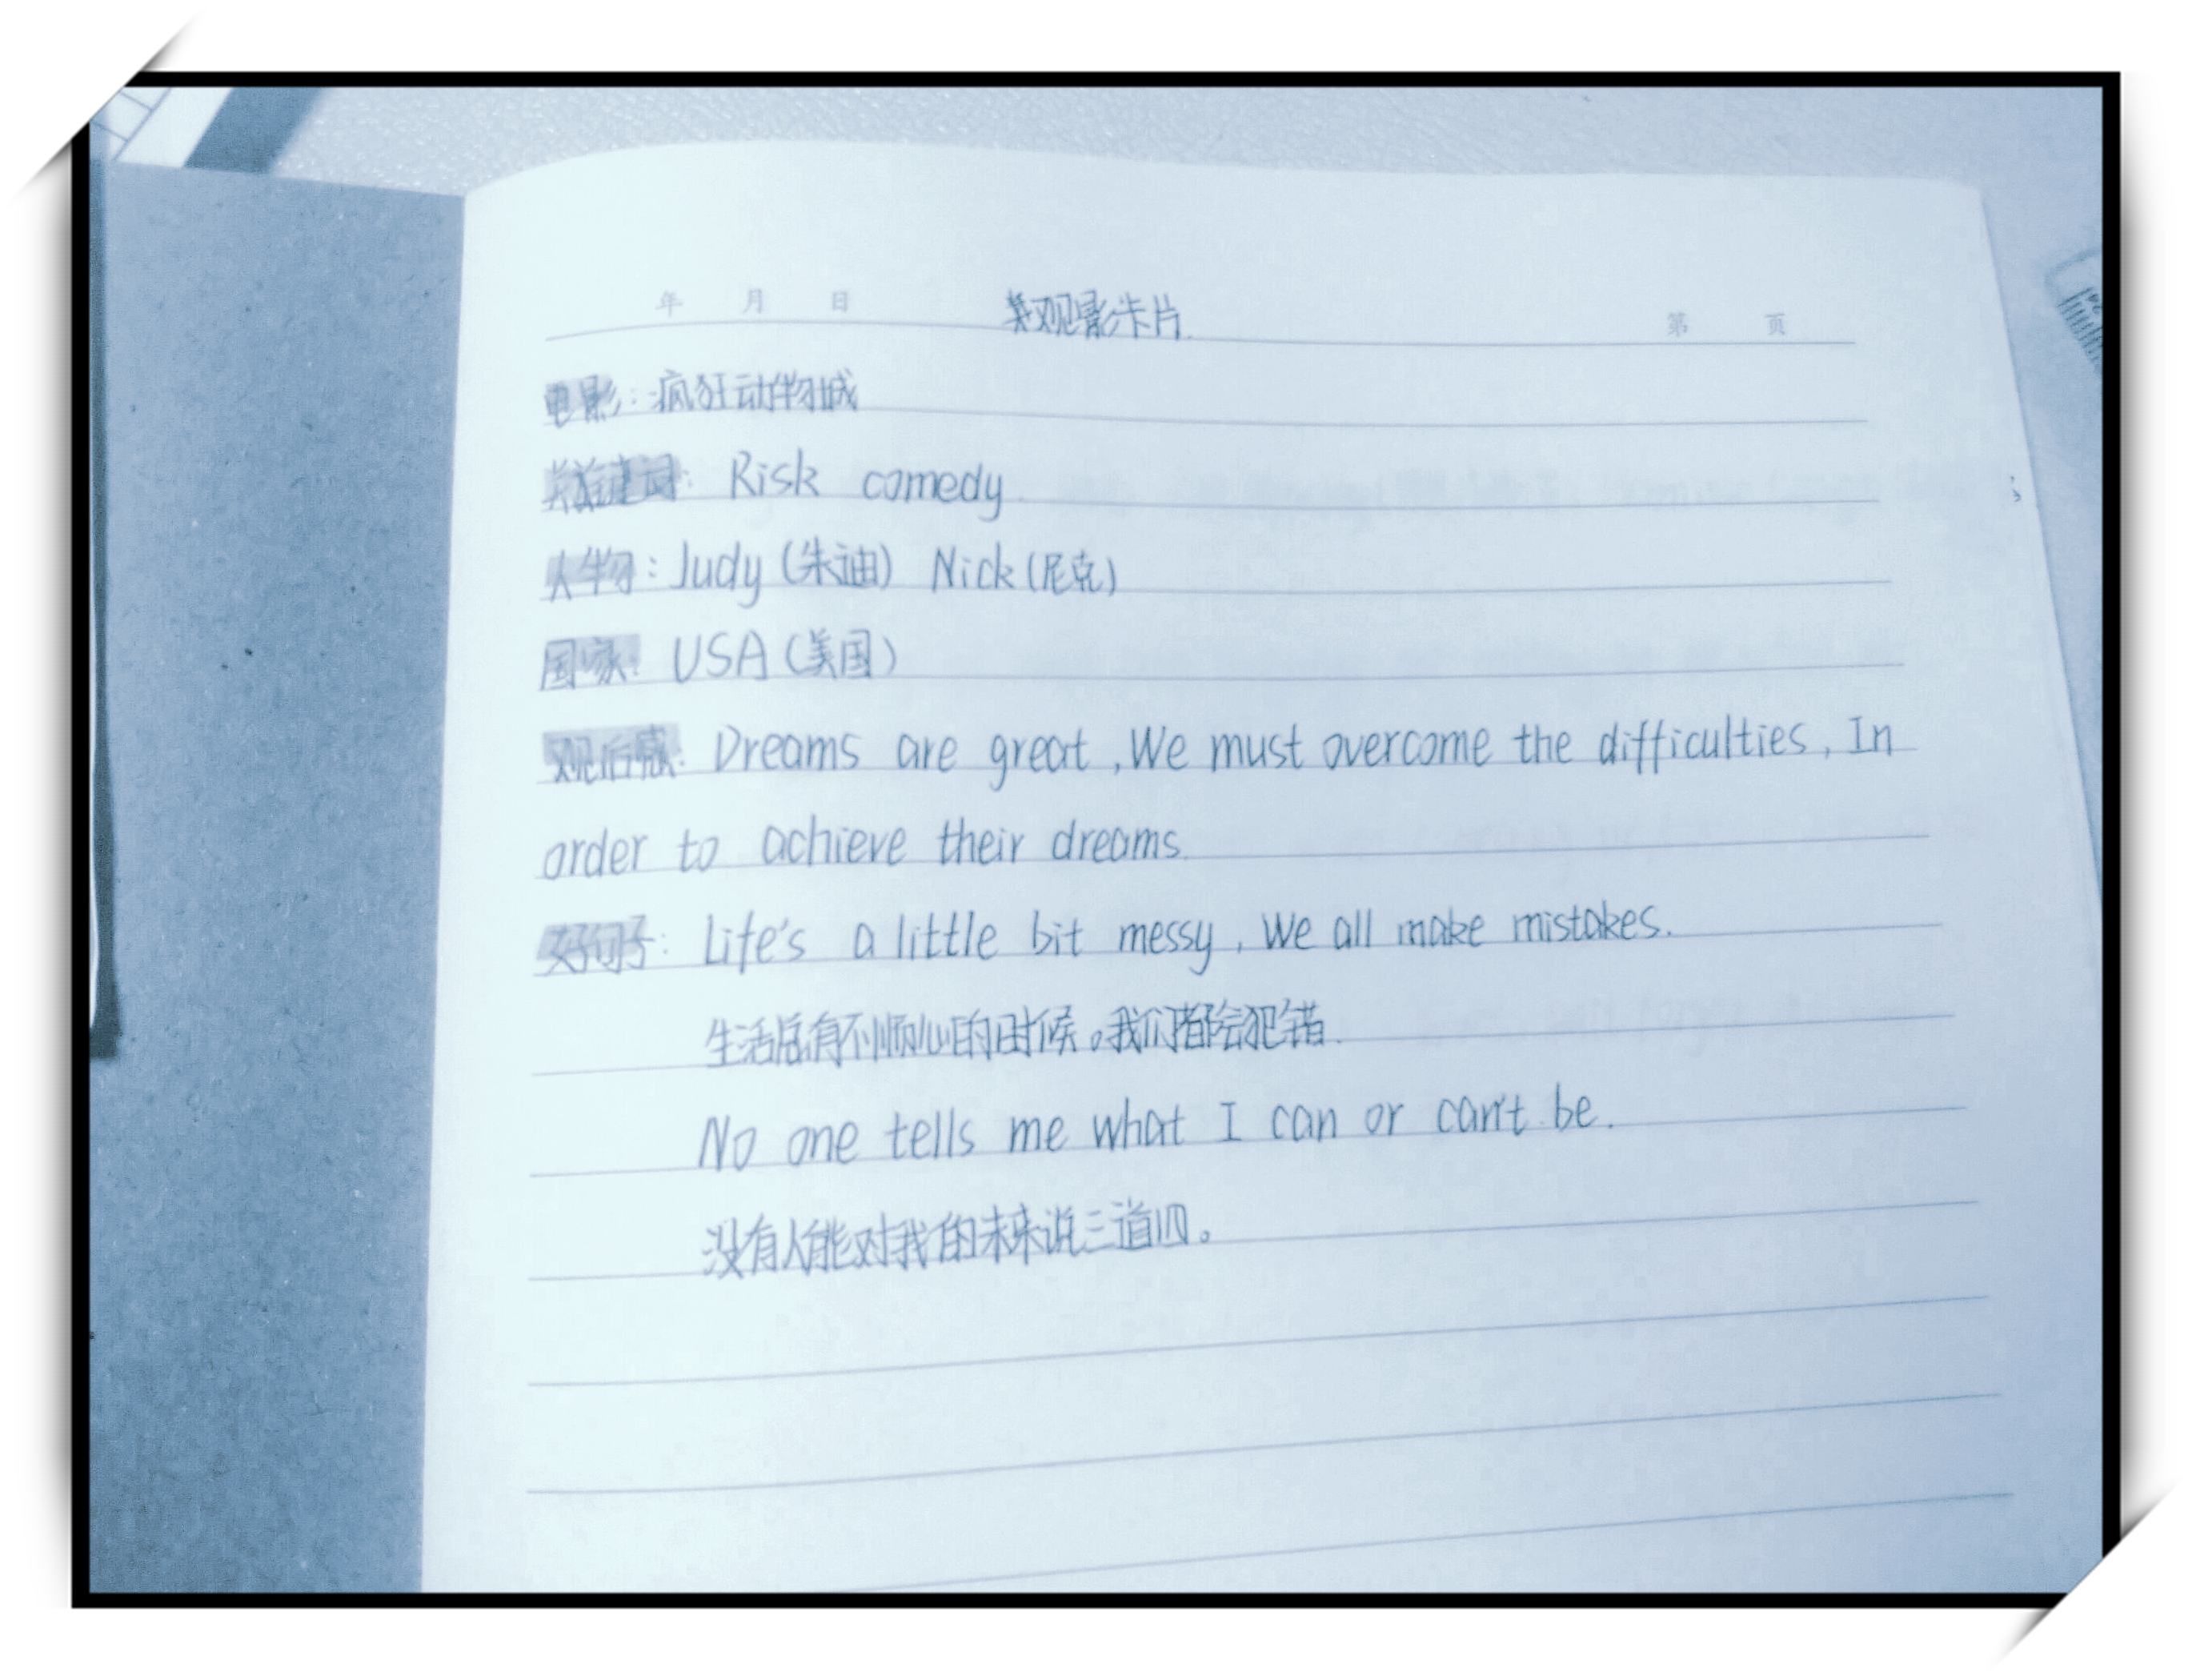 年 月 日 英观影卡片. 第 页
电影: 疯狂动物城
关键词: Risk comedy.
人物: Judy (朱迪) Nick (尼克)
国家: USA (美国)
观后感: Dreams are great ,We must overcome the difficulties, In
order to achieve their dreams.
好句子: Life's a little bit messy, We all make mistakes.
生活总有不顺心的时候。我们都会犯错.
No one tells me what I can or can't be.
没有人能对我的未来说三道四。